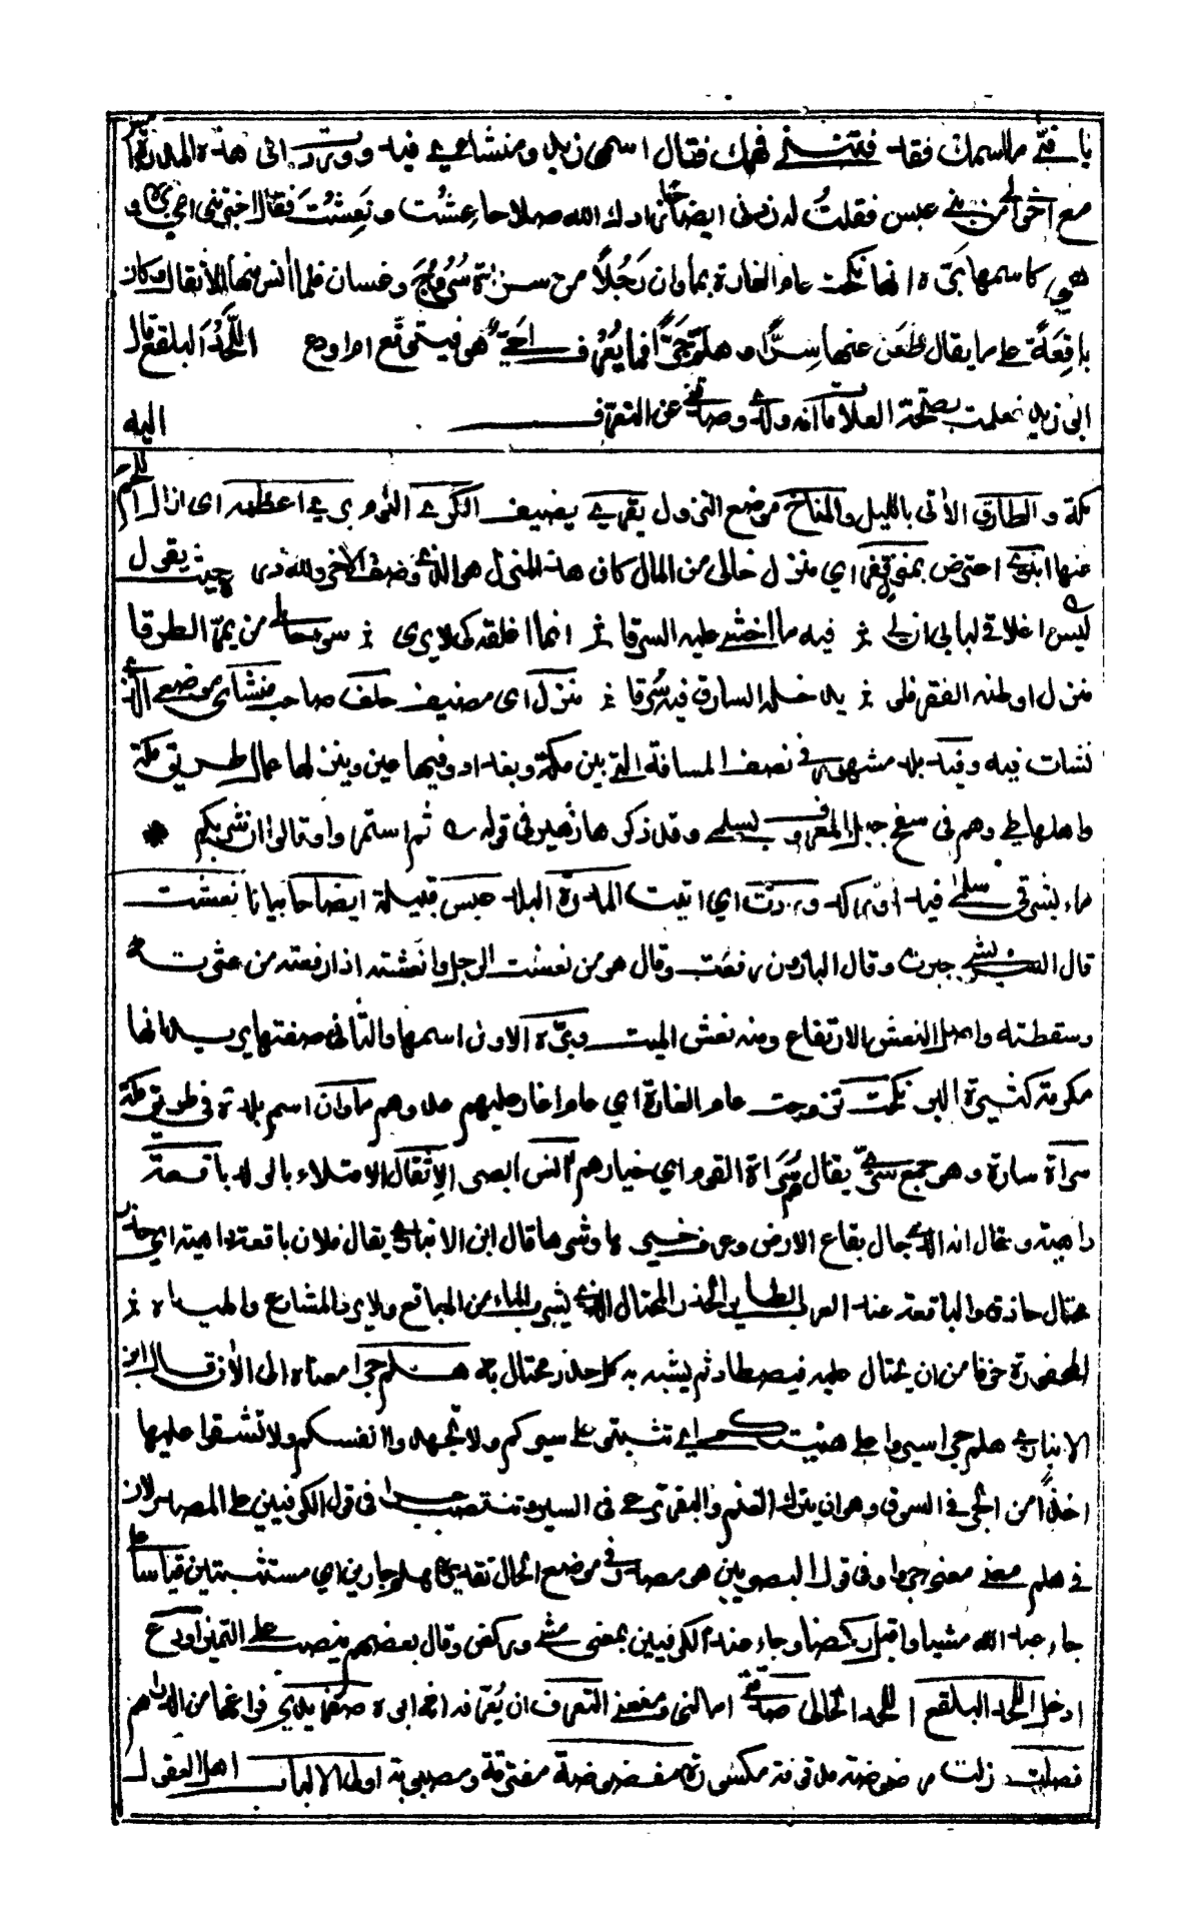 يا فتى ما اسمك فقد فتنني فهمك فقال اسمي زيد ومنشاي فيد ووردت الى هذه المدرة امس
مع اخوالي من بني عبس فقلت له زدني ايضاحا زادك الله صلاحا عشت ونعشت فقال اخبرتني امي برة و
هي كاسمها برة انها نكحت عام الغارة بماوان رجلا من سراة سروج وغسان فلما انس منها الاثقال وكان
باقعة على ما يقال ظعن عنها سرا وهلم جرا فما يعرف احي هو فيتوقع ام اودع اللحد البلقع قال
ابو زيد فعلمت بصحة العلامات انه ولدي وصدفني عن التعرف
اليه
مكة والطارق الآتي بالليل والمناخ موضع النزول يقري يضيف الكرى النوم بري اعظمه اي ازال اللحم
عنها انبرى اعترض بمنزل قفر اي منزل خالي من المال كان هذا المنزل هو الذي وصفه الآخر ولله دره حيث يقول
ليس اغلاقي لبابي ان لي فيه ما اخشى عليه السرقا انما اغلقه كي لا يرى سوء حالي من يمر الطرقا
منزل اوطنه الفقر فلو يدخله السارق فيه سرقا منزل اي مضيف حلف صاحب منشاي موضعي الذي
نشات فيه وفيد بلد مشهور في نصف المسافة التي بين مكة وبغداد وفيها عين وينزلها عمال طريق مكة
واهلها طي وهم في سفح جبلهم المعروف بسلمى وقد ذكرها زهير في قوله ثم استمروا وقالوا ان مشربكم
ماء بشرقي سلمى فيد او ركك وردت اي اتيت المدرة البلد عبس قبيلة ايضاحا بيانا نعشت
قال الليث جبرت وقال الباقون رفعت وقال هو من نعشت الرجل وانعشته اذا رفعته من عثرته
وسقطته واصل النعش الارتفاع ومنه نعش الميت وبرة الاولى اسمها والثاني صفتها يريد انها
مكرمة كثيرة البر نكحت تزوجت عام الغارة اي عام اغار عليهم عدوهم ماوان اسم بلدة في طريق مكة
سراة سادة وهو جمع سري يقال هم سراة القوم اي خيارهم انس ابصر الاثقال الامتلاء بالولد باقعة
داهية ويقال انه الذي جال بقاع الارض وعرف خيرها وشرها قال ابن الانباري يقال فلان باقعة داهية اي حاذر
محتال حاذق والباقعة عند العرب الطاير الحذر المحتال الذي يشرب الماء من البقاع ولا يرد المشارع والمياه
المحضورة خوفا من ان يحتال عليه فيصطاد ثم يشبه به كل حذر محتال هلم جرا معناه الى الآن قال ابن
الانباري هلم جرا سيروا على هينتكم اي تثبتوا في سيركم ولا تجهدوا انفسكم ولا تشقوا عليها
اخذا من الجر في السوق وهو ان يترك الغنم والبقر ترعى في السير وتنتصب جرا في قول الكوفيين على المصدر لان
في هلم معنى معنى جروا وفي قول البصريين هو مصدر في موضع الحال تقديره هلم جارين اي متثبتين قياسا على
جاء عبد الله مشيا واقبل ركضا وجاء عند الكوفيين بمعنى مشى وركض وقال بعضهم ينصب على التمييز اودع
ادخل اللحد البلقع اللحد الخالي صدفني امالني ومنعني التعرف ان يعرفه انه ابوه صفر يدي فراغها من الدراهم
فصلت زلت مرضوضة مدقوقة مكسورة مفضوضة مفترقة ومصبوبة اولي الالباب اهل العقول